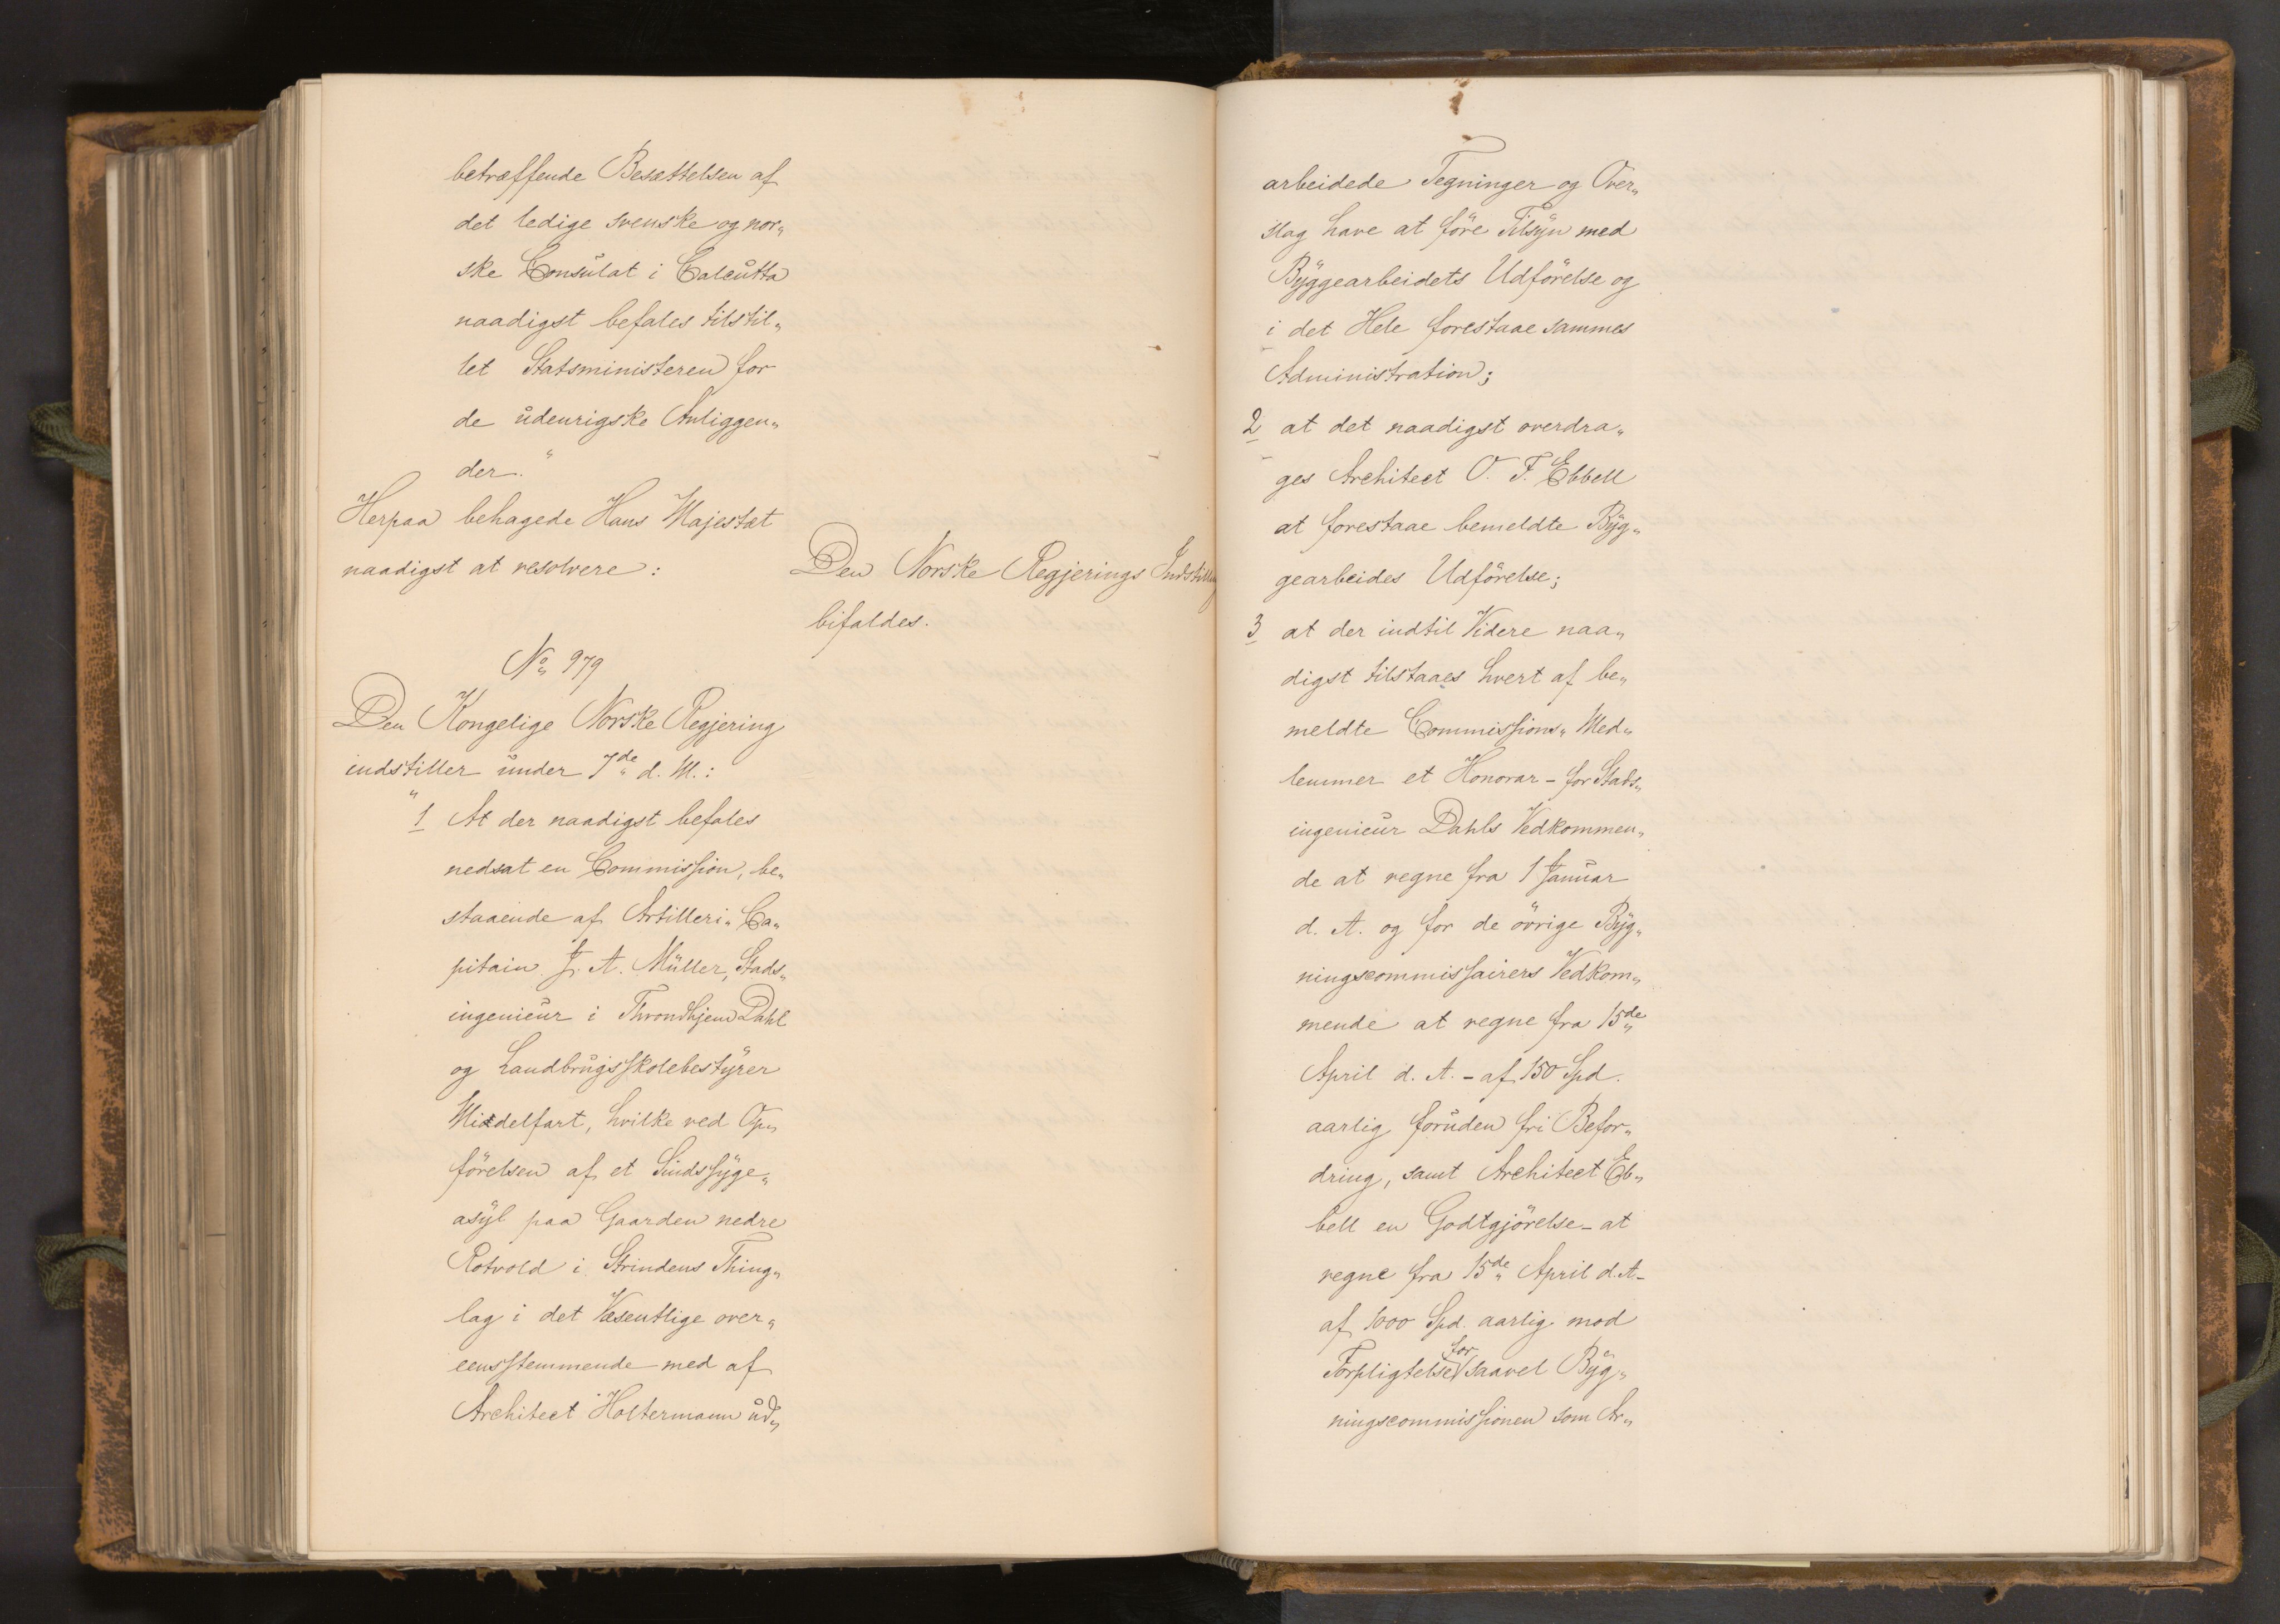 betræffende Besættelsen af
det ledige svenske og nor„
ske Consulat i Calcutta
naadigst befales tilstil„
let Statsministeren for
de udenrigske Anliggen„
der."
Herpaa behagede Hans Majestæt
naadigst at resolvere:
Den Norske Regjerings Indstilling
bifaldes.
No 979
Den Kongelige Norske Regjering
indstiller under 7de d. M.:
"1 At der naadigst befales
nedsat en Commission, be„
staaende af Artilleri„Ca„
pitain J. A. Müller, Stads„
ingenieur i Throndhjem Dahl
og Landbrugsskolebestyrer
Middelfart, hvilke ved Op„
förelsen af et Sindssyge„
asyl paa Gaarden nedre
Rotvold i Strindens Thing„
lag i det Væsentlige over„
eensstemmende med af
Architect Holtermann ud„
arbeidede Tegninger og Over„
slag have at före Tilsyn med
Byggearbeidets Udförelse og
i det Hele forestaae sammes
Administration;
2 at det naadigst overdra„
ges Architect O. F. Ebbell
at forestaae bemeldte Byg„
gearbeides Udförelse;
3 at der indtil Videre naa„
digst tilstaaes hvert af be„
meldte Commissions„Med„
lemmer et Honorar - for Stads„
ingenieur Dahls Vedkommen„
de at regne fra 1 Januar
d. A. og for de övrige Byg„
ningscommissairers Vedkom„
mende at regne fra 15de
April d. A. - af 150 Spd.
aarlig foruden fri Befor„
dring, samt Architect Eb„
bell en Godtgjörelse - at
regne fra 15de April d. A. -
af 1000 Spd. aarlig mod
Forpligtelse for saavel Byg„
ningscommissionen som Ar„